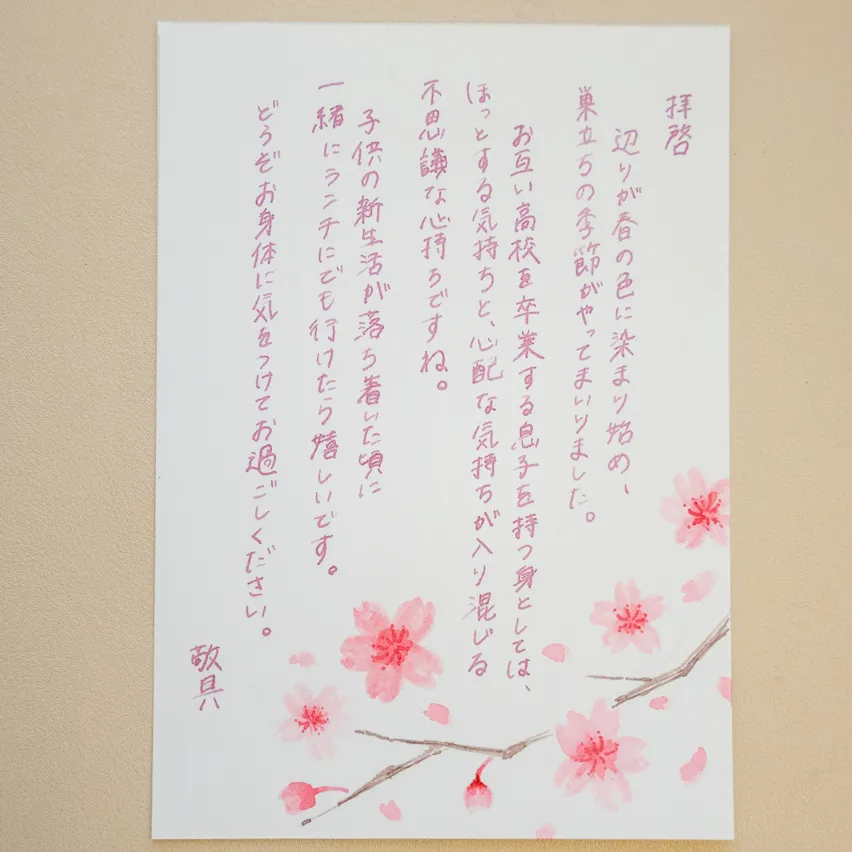 拝啓
辺りが春の色に染まり始め、
巣立ちの季節がやってまいりました。
お互い高校を卒業する息子を持つ身としては、
ほっとする気持ちと、心配な気持ちが入り混じる
不思議な心持ちですね。
子供の新生活が落ち着いた頃に
一緒にランチにでも行けたら嬉しいです。
どうぞお身体に気をつけてお過ごしください。
敬具